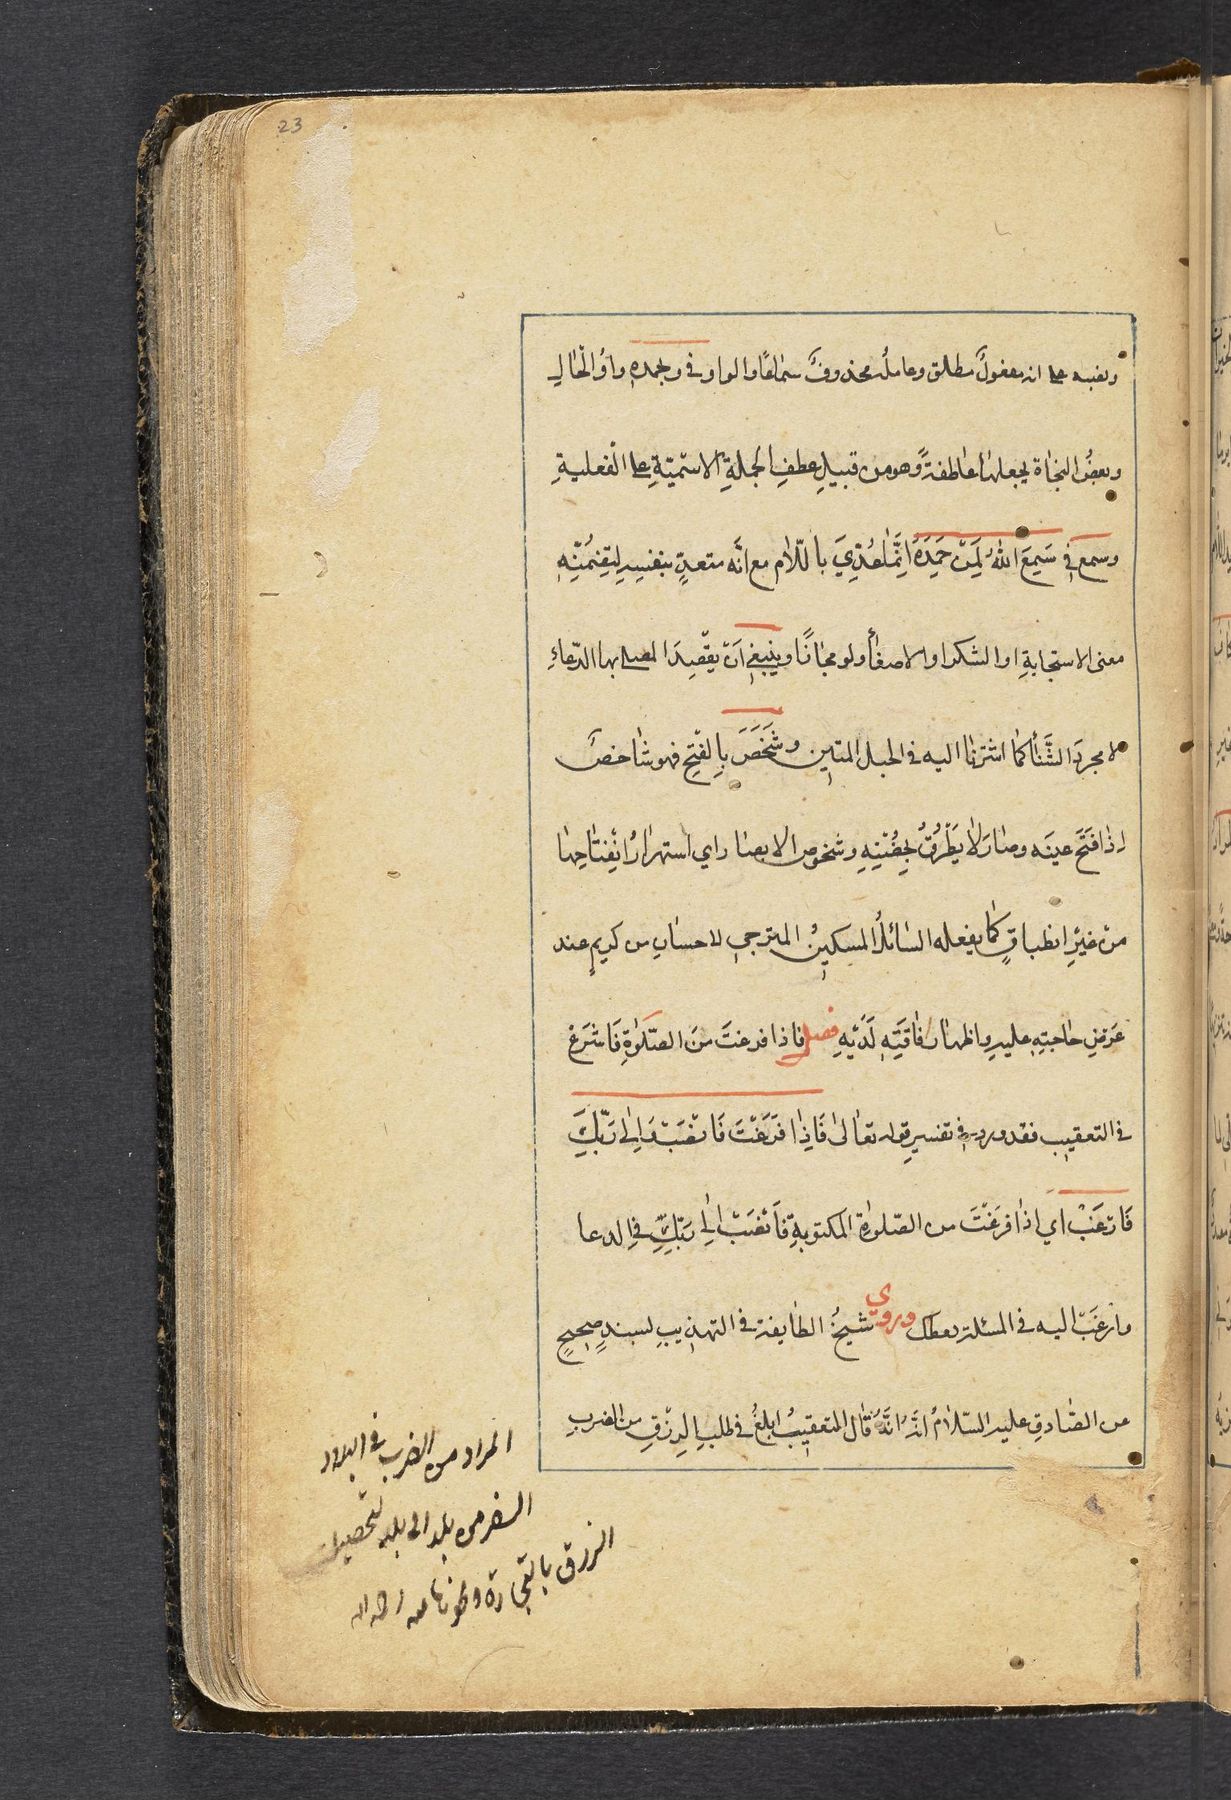 23
ونصبه على انه مفعولٌ مطلق وعامله محذوفٌ سماعًا والواو في وبحمده واوُ الْحٰالِ
وبعضُ النحٰاة يجعلهٰا عٰاطفةً وهو من قبيلِ عطفِ الجملةِ الاسْميّةِ على الْفعليةِ
وسمع في سَمِعَ اللّٰهُ لِمَنْ حَمِدَهُ اِنَّمٰا عُدِّيَ باللّام مع انَّه متعدٍّ بنفسِهِ لِتضمُّنِهِ
معنى الاستجابةِ او الشكر او الاصغاءِ ولو مجازًا وينبغي اَنْ يقْصِدَ المصلى بها الدّعاءِ
لا مجردَ الثَّنٰاءِ كمٰا اشرنٰا اليه في الحبل المتين وشَخَصَ بِالفتْحِ فهو شٰاخصٌ
اِذٰا فَتَحَ عينَه وصٰارَ لاٰ يَطْرُفُ بِجفْنَيْهِ وشخوص الابصٰار اي استمرٰارُ انْفِتٰاحِهٰا
من غيْرِ انطباقٍ كمٰا يفعله السٰائلُ المسكينُ المترجي لاحسٰانٍ من كريمٍ عند
عَرْضِ حٰاجتِهِ عليهِ واظهٰار فٰاقَتِهِ لَدَيْهِ فصل فاذا فرغتَ مِنَ الصّلوٰةِ فَاشْرَعْ
في التعقيب فقد ورد في تفسيرِ قوله تعٰالىٰ فَاِذٰا فَرَغْتَ فَانْصَبْ وَاِلىٰ رَبِّكَ
فَارْغَبْ اي اذٰا فرَغْتَ من الصّلوٰةِ المكتوبةِ فَانْصَبْ اِلىٰ رَبِّكَ في الدعا
وارْغَبْ اليه في المسئلة يعطك وروي شيخُ الطٰايفة في التهذيبِ بسندٍ صحيحٍ
عن الصّٰادقِ عليه السّلامُ انَّهُ قٰال التعقيبُ ابلغُ في طلبِ الرزْقِ من الضربِ
المراد من الضرب في البلاد
السفر من بلد الى بلد لتحصيل
الرزق بالتجارة ونحوها منه